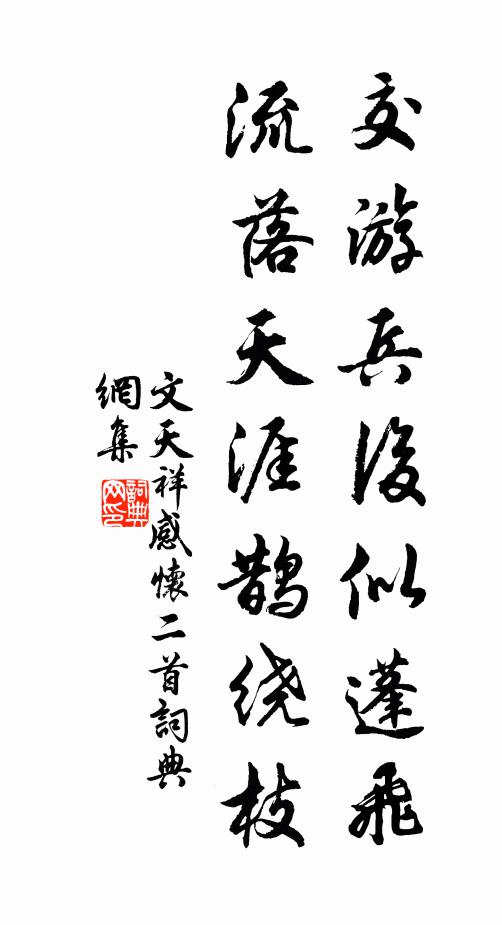 交游兵後似蓬飛
流落天涯鹊绕枝
文天祥感懷二首詞典
網集
詞典網印